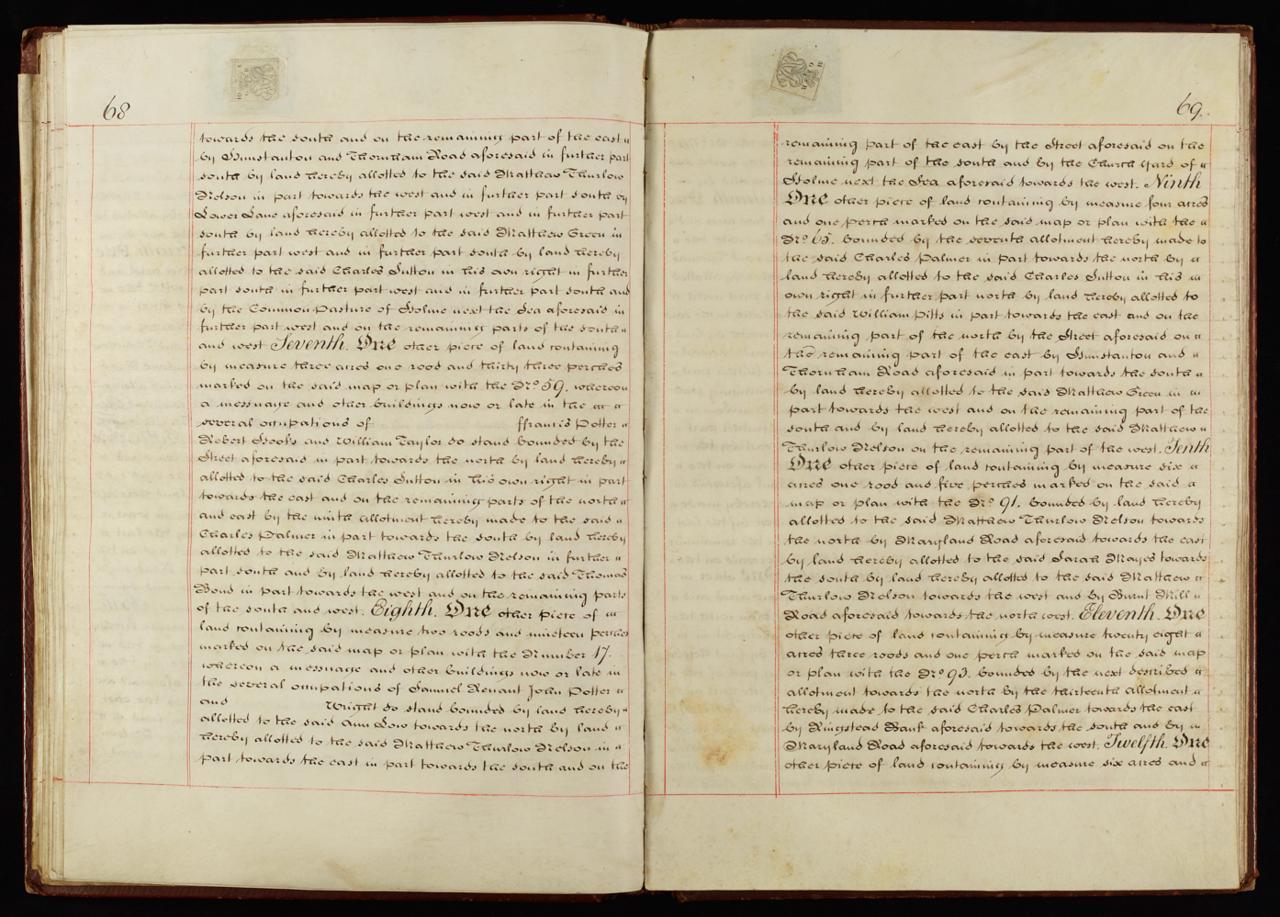 68
towards the south and on the remaining part of the east
by Hunstanton and Thornham Road aforesaid in further part
south by land hereby allotted to the said Matthew Thurlow
Nelson in part towards the west and in further part south by
Lower Lane aforesaid in further part west and in further part
south by land hereby allotted to the said Matthew Green in
further part west and in further part south by land hereby
allotted to the said Charles Sutton in his own right in further
part south in further part west and in further part south and
by the Common Pasture of Holme next the Sea aforesaid in
further part west and on the remaining parts of the south
and west Seventh. One other piece of land containing
by measure three acres one rood and thirty three perches
marked on the said map or plan with the No. 59. whereon
a messuage and other buildings now or late in the
several occupations of ffrancis Potter
Robert Hooks and William Taylor do stand bounded by the
Street aforesaid in part towards the north by land hereby
allotted to the said Charles Sutton in his own right in part
towards the east and on the remaining parts of the north
and east by the ninth allotment hereby made to the said
Charles Palmer in part towards the south by land hereby
allotted to the said Matthew Thurlow Nelson in further
part south and by land hereby allotted to the said Thomas
Bond in part towards the west and on the remaining parts
of the south and west. Eighth. One other piece of
land containing by measure two roods and nineteen perches
marked on the said map or plan with the Number 17.
whereon a messuage and other buildings now or late in
the several occupations of Samuel John Potter
and Wright do stand bounded by land hereby
allotted to the said Ann Low towards the north by land
hereby allotted to the said Matthew Thurlow Nelson in
part towards the east in part towards the south and on the
69.
remaining part of the east by the Street aforesaid on the
remaining part of the south and by the Church Yard of
Holme next the Sea aforesaid towards the west. Ninth
One other piece of land containing by measure four acres
and one perch marked on the said map or plan with the
No. 65. bounded by the seventh allotment hereby made to
the said Charles Palmer in part towards the north by
land hereby allotted to the said Charles Sutton in his
own right in further part north by land hereby allotted to
the said William Pitts in part towards the east and on the
remaining part of the north by the Street aforesaid on
the remaining part of the east by Hunstanton and
Thornham Road aforesaid in part towards the south
by land hereby allotted to the said Matthew Green in
part towards the west and on the remaining part of the
south and by land hereby allotted to the said Matthew
Thurlow Nelson on the remaining part of the west. Tenth
One other piece of land containing by measure six
acres one rood and five perches marked on the said
map or plan with the No. 91. bounded by land hereby
allotted to the said Matthew Thurlow Nelson towards
the north by Maryland Road aforesaid towards the east
by land hereby allotted to the said Sarah Mayes towards
the south by land hereby allotted to the said Matthew
Thurlow Nelson towards the west and by Burnt Mill
Road aforesaid towards the north west. Eleventh. One
other piece of land containing by measure twenty eight
acres three roods and one perch marked on the said map
or plan with the No. 93. bounded by the next described
allotment towards the north by the thirteenth allotment
hereby made to the said Charles Palmer towards the east
by Ringstead Bank aforesaid towards the south and by
Maryland Road aforesaid towards the west. Twelfth. One
other piece of land containing by measure six acres and